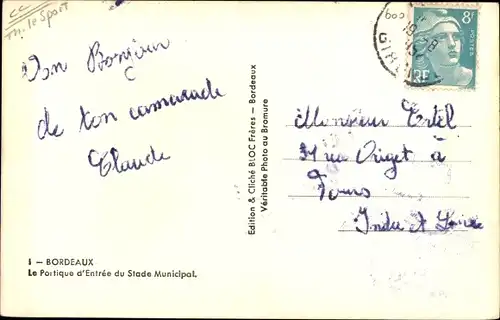 Th. le Sport
8F
POSTES
RF
GIR
Un Bonjour
de ton camarade
Claude
Edition & Cliché BLOC Frères - Bordeaux
Véritable Photo au Bromure
Monsieur Ertel
31 rue Origet à
Tours
Indre et Loire
1 — BORDEAUX
Le Portique d'Entrée du Stade Municipal.